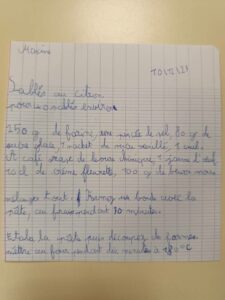 Maxime
10/12/21
Sablés au citron
pour 40 sablés environ
250 g de farine, une pincée de sel, 80 g de
sucre glace, 1 sachet de sucre vanillé, 1 cuil.
à café rase de levure chimique, 1 jaune d'œuf
10 cl de crème fleurette, 100 g de beurre mou
mélanger tout. Former une boule avec la
pâte, au frais pendant 30 minutes.
Etaler la pâte puis découper des formes
mettre au four pendant dix minutes à 180°C